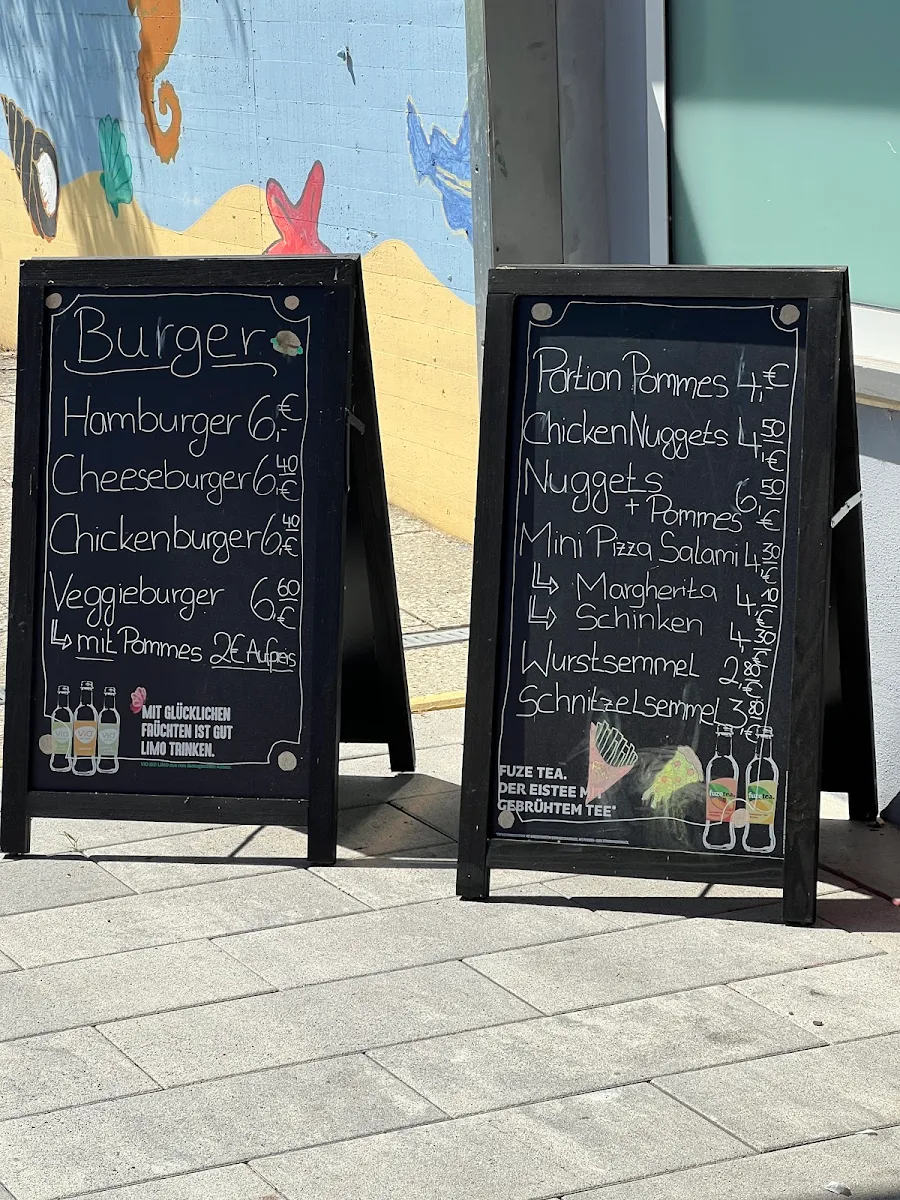 Burger
Hamburger 6,-€
Cheeseburger 6,40€
Chickenburger 6,40€
Veggieburger 6,60€
↳ mit Pommes 2€ Aufpreis
VIO VIO VIO
MIT GLÜCKLICHEN
FRÜCHTEN IST GUT
LIMO TRINKEN.
Portion Pommes 4,€
Chicken Nuggets 4,50€
Nuggets
+ Pommes 6,50€
Mini Pizza Salami 4,30€
↳ Margherita 4,
↳ Schinken 4,30€
Wurstsemmel 2,80€
Schnitzelsemmel 3,80€
FUZE TEA.
DER EISTEE MIT
GEBRÜHTEM TEE*
fuzetea. fuzetea.